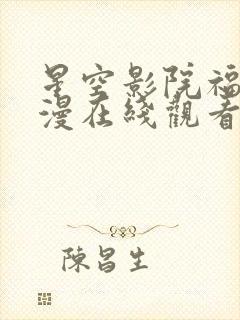 星空影院福
漫在綫觀看
陳昌生